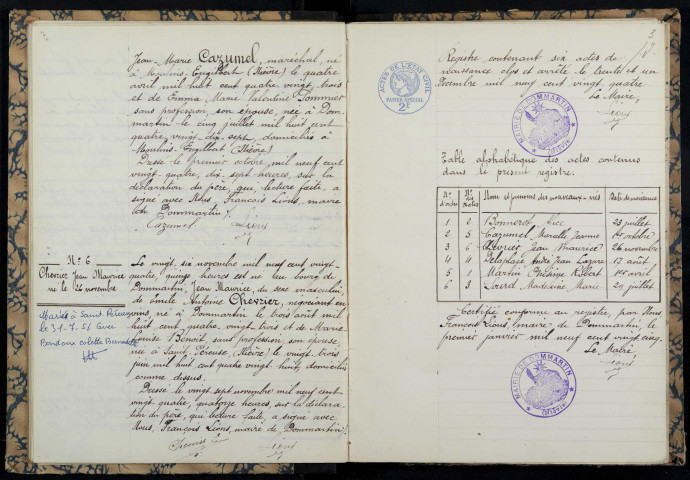 Jean-Marie Cazumel, maréchal, né
à Moulins-Engilbert (Nièvre) le quatre
avril mil huit cent quatre vingt trois
et de Emma Marie Valentine Pommier
sans profession, son épouse, née à Dom-
martin le cinq juillet mil huit cent
quatre vingt dix sept, domiciliés à
Moulins-Engilbert (Nièvre)
Dressé le premier octobre, mil neuf cent
vingt-quatre, dix sept heures, sur la
déclaration du père, qui, lecture faite, a
signé avec Nous, François Lions, maire
de Dommartin.
Cazumel Lions
N° 6
Chevrier Jean Maurice
né le 26 novembre
Marié à Saint
le 31.7.56 avec
Colette
Le vingt six novembre mil neuf cent vingt-
quatre, quinze heures est né au bourg de
Dommartin, Jean Maurice, du sexe masculin
de Antoine Chevrier, négociant en
vins, né à Dommartin le trois août mil
huit cent quatre vingt trois et de Marie
Louise Benoit sans profession, son épouse,
née à Saint Péreuse (Nièvre) le vingt trois
juin mil huit cent quatre vingt huit, domiciliés
comme dessus.
Dressé le vingt sept novembre mil neuf cent
vingt quatre, quatorze heures, sur la déclara-
tion du père, qui, lecture faite, a signé avec
Nous, François Lions, maire de Dommartin.
Lions
3
ACTES DE L'ÉTAT CIVIL
PAPIER SPÉCIAL
2F
Registre contenant six actes de
naissance clos et arrêté le trente et un
Décembre mil neuf cent vingt quatre
Le Maire,
Lions
MAIRIE DE DOMMARTIN
(NIÈVRE)
Table alphabétique des actes contenus
dans le présent registre.
Nos d'ordre Nos des actes Nom et prénoms des nouveaux-nés Date de naissance
1 2 Bonnerot 23 juillet
2 5 Cazumel Marcelle Jeanne 1er octobre
3 6 Chevrier Jean Maurice 26 novembre
4 4 Delaplace André Jean Lazare 17 août
5 1 Martin Philippe Albert 1er avril
6 3 Madeleine Marie 29 juillet
Certifié conforme au registre, par Nous,
François Lions, maire de Dommartin, le
premier janvier mil neuf cent vingt cinq.
Le Maire
Lions
MAIRIE DE DOMMARTIN
(NIÈVRE)